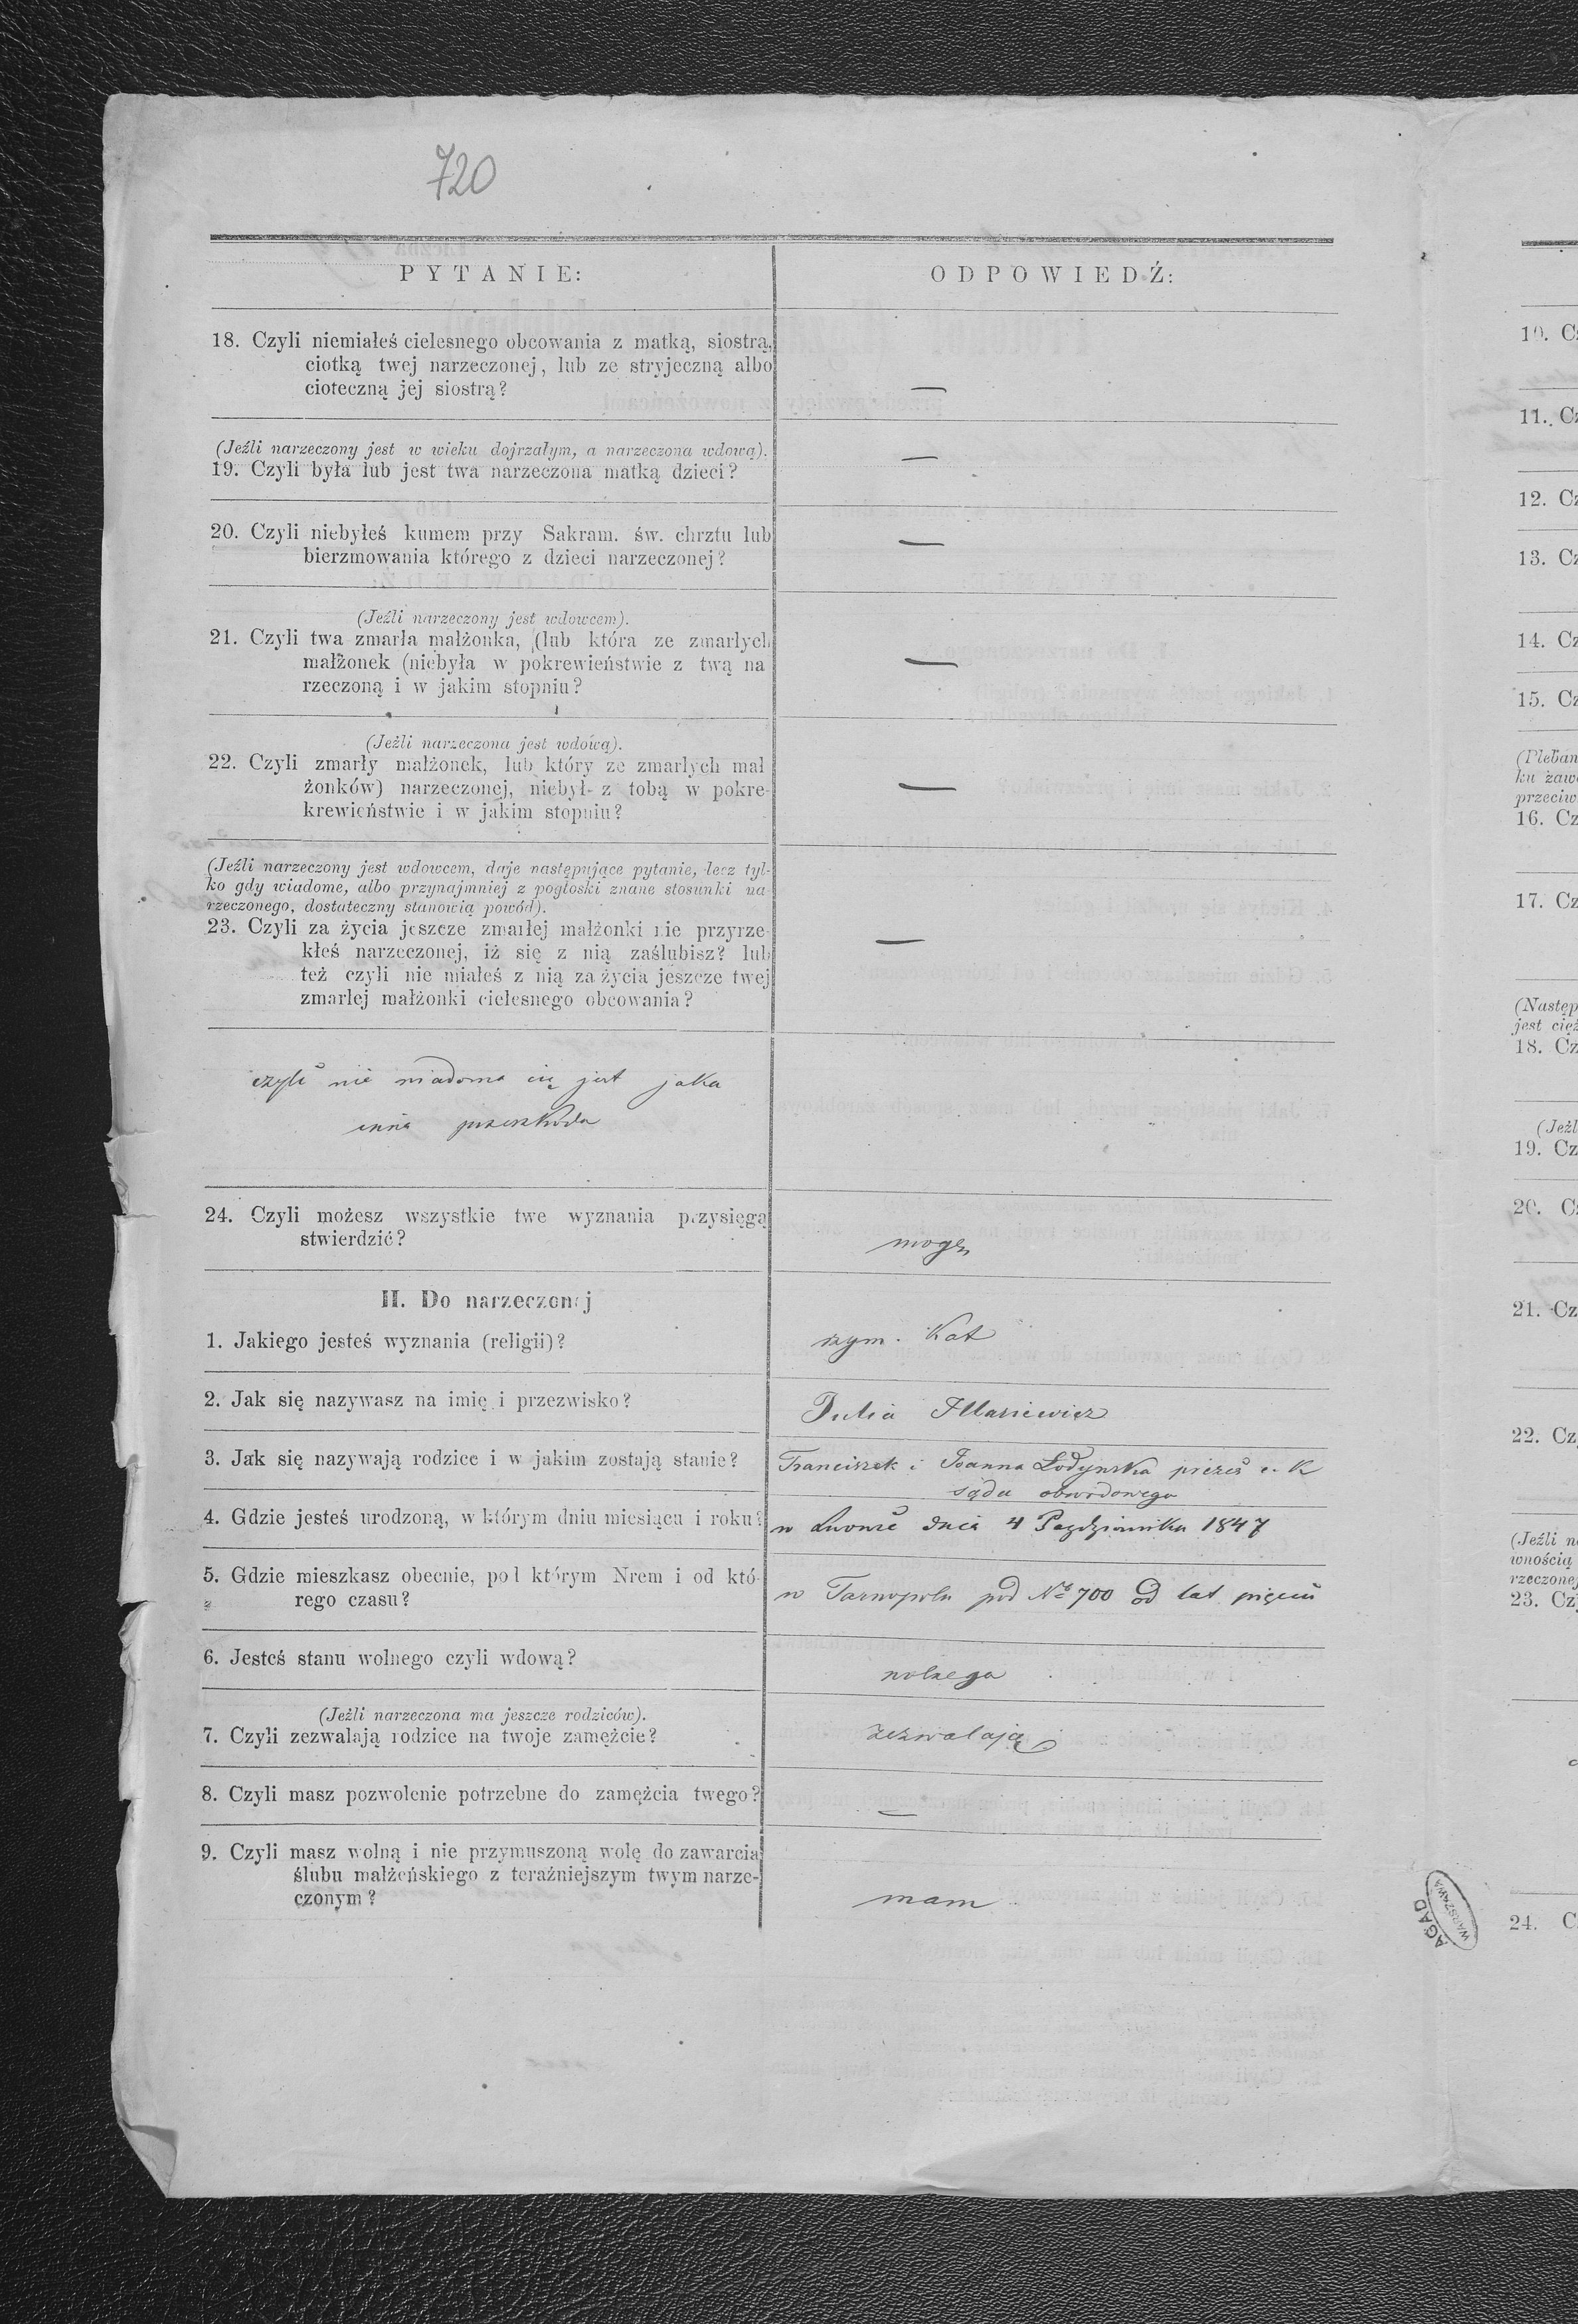 720
PYTANIE:
ODPOWIEDŹ:
18. Czyli niemiałeś cielesnego obcowania z matką, siostrą,
ciotką twej narzeczonej, lub ze stryjeczną albo
cioteczną jej siostrą?
—
(Jeźli narzeczony jest w wieku dojrzałym, a narzeczona wdową).
19. Czyli była lub jest twa narzeczona matką dzieci?
—
20. Czyli niebyłeś kumem przy Sakram. św. chrztu lub
bierzmowania którego z dzieci narzeczonej?
—
(Jeźli narzeczony jest wdowcem).
21. Czyli twa zmarła małżonka, (lub która ze zmarłych
małżonek (niebyła w pokrewieństwie z twą na
rzeczoną i w jakim stopniu?
—
(Jeźli narzeczona jest wdową).
22. Czyli zmarły małżonek, lub który ze zmarłych mał
żonków) narzeczonej, niebył z tobą w pokre-
krewieństwie i w jakim stopniu?
—
(Jeźli narzeczony jest wdowcem, daje następujące pytanie, lecz tyl-
ko gdy wiadome, albo przynajmniej z pogłoski znane stosunki na-
rzeczonego, dostateczny stanowią powód).
23. Czyli za życia jeszcze zmarłej małżonki nie przyrze-
kłeś narzeczonej, iż się z nią zaślubisz? lub
też czyli nie miałeś z nią za życia jeszcze twej
zmarłej małżonki cielesnego obcowania?
—
czyli nie wiadoma ci jest jaka
inna przeszkoda
24. Czyli możesz wszystkie twe wyznania przysięgą
stwierdzić?
mogę
II. Do narzeczonej
1. Jakiego jesteś wyznania (religii)?
rzym. Kat
2. Jak się nazywasz na imię i przezwisko?
Julia Illasiewicz
3. Jak się nazywają rodzice i w jakim zostają stanie?
Franciszek i Joanna Łodyńska prezes c. K
sądu obwodowego
4. Gdzie jesteś urodzoną, w którym dniu miesiącu i roku?
w Lwowie dnia 4 Października 1847
5. Gdzie mieszkasz obecnie, pod którym Nrem i od któ-
rego czasu?
w Tarnopolu pod No 700 od lat pięciu
6. Jesteś stanu wolnego czyli wdową?
wolnego
(Jeźli narzeczona ma jeszcze rodziców).
7. Czyli zezwalają rodzice na twoje zamężcie?
zezwalają
8. Czyli masz pozwolenie potrzebne do zamężcia twego?
—
9. Czyli masz wolną i nie przymuszoną wolę do zawarcia
ślubu małżeńskiego z teraźniejszym twym narze-
czonym?
mam
AGAD
WARSZAWA
10. C
11. Cz
12. Cz
13. Cz
14. Cz
15. Cz
(Pleban
ku zaw
przeciw
16. Cz
17. Cz
(Następ
jest cięż
18. Cz
(Jeźl
19. Cz
20. C
21. Cz
22. Cz
(Jeźli n
wnością
rzeczonej
23. Cz
24. C